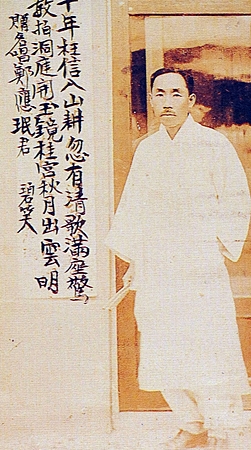 十年枉信入山耕忽有清歌滿座驚
敎指洞庭開玉鏡桂宮秋月出雲明
贈名唱鄭應珉君
碧笑